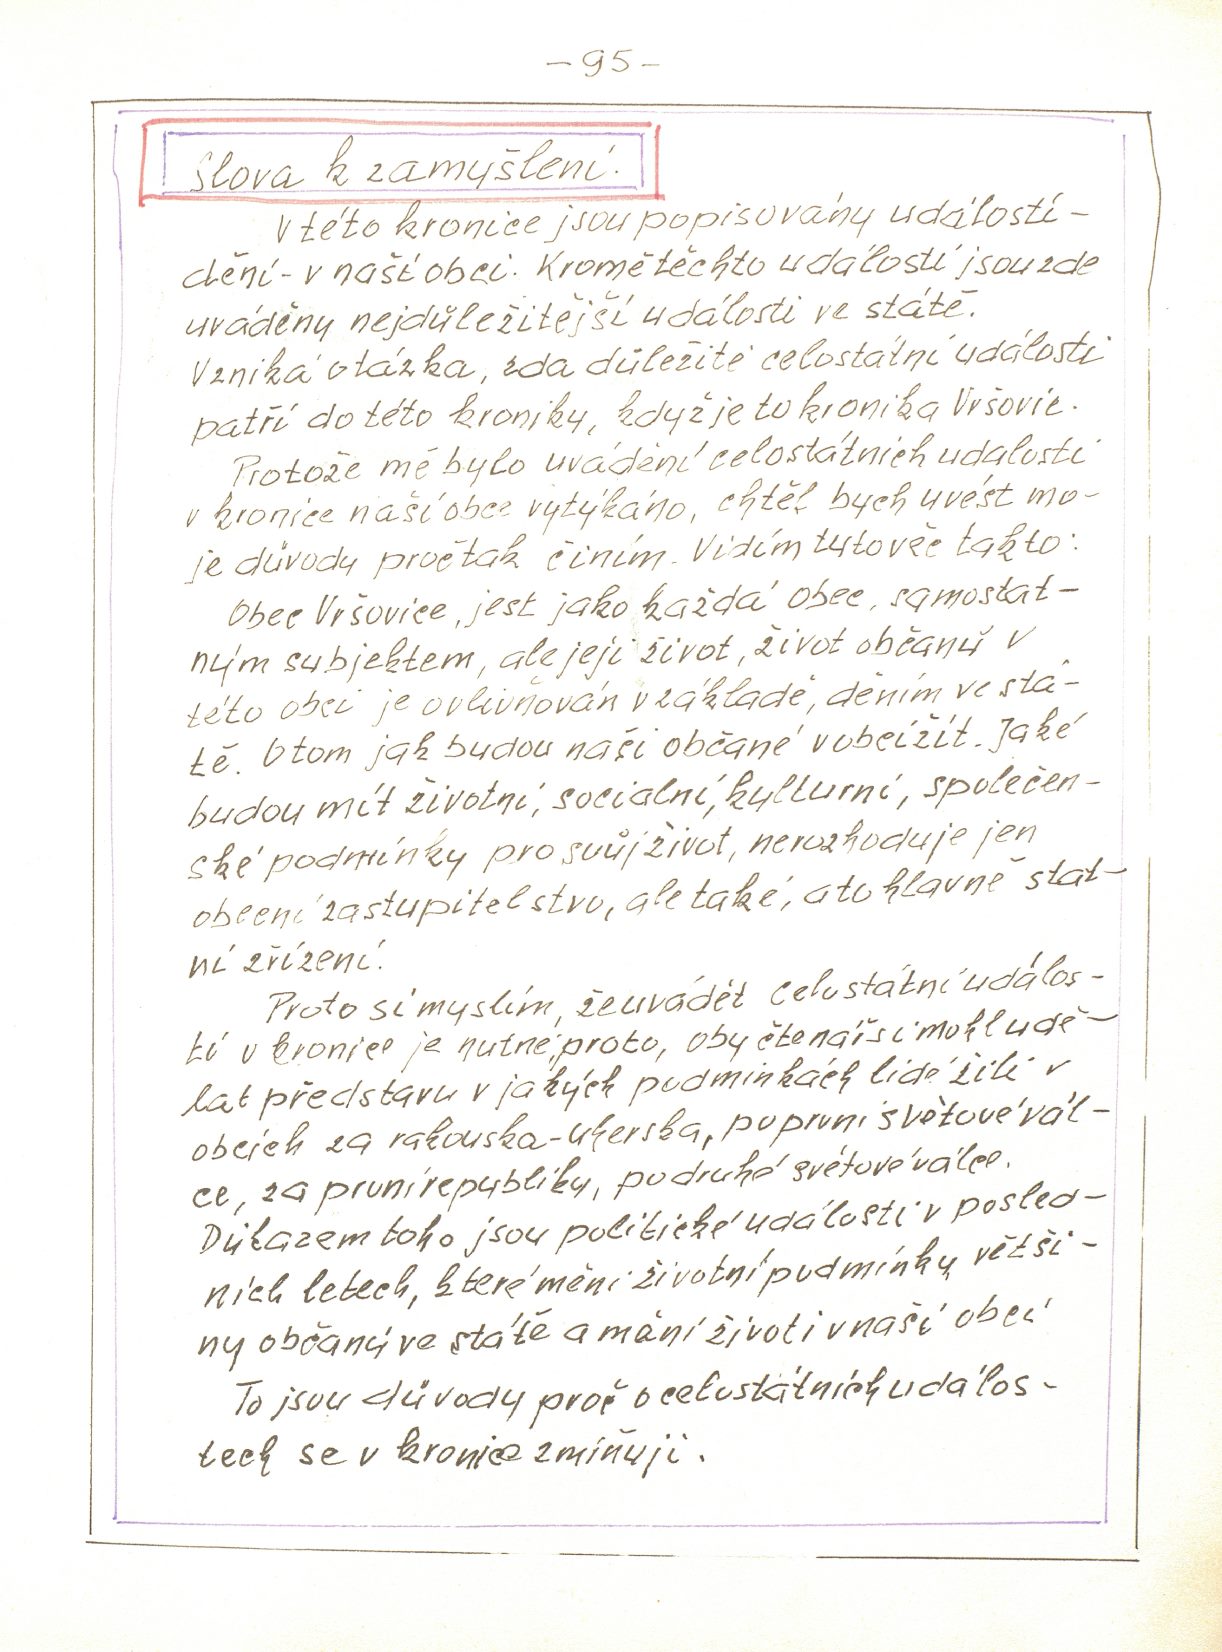 - 95 -
Slova k zamyšlení.
V této kronice jsou popisovány události -
dění - v naší obci. Kromě těchto událostí jsou zde
uváděny nejdůležitější události ve státě.
Vzniká otázka, zda důležité celostátní události
patří do této kroniky, když je to kronika Vršovic.
Protože mě bylo uvádění celostátních událostí
v kronice naší obce vytýkáno, chtěl bych uvést mo-
je důvody proč tak činím. Vidím tuto věc takto:
Obec Vršovice, jest jako každá obec, samostat-
ným subjektem, ale její život, život občanů v
této obci je ovlivňován v základě, děním ve stá-
tě. O tom jak budou naši občané v obci žít. Jaké
budou mít životní, socialní, kulturní, společen-
ské podmínky pro svůj život, nerozhoduje jen
obecní zastupitelstvo, ale také, a to hlavně stat-
ní zřízení.
Proto si myslím, že uvádět celostátní událos-
ti v kronice je nutné, proto, oby čtenář si mohl udě-
lat představu v jakých podmínkách lidé žili v
obcích za rakouska-uherska, po první světové vál-
ce, za první republiky, po druhé světové válce.
Důkazem toho jsou politické události v posled-
ních letech, které mění životní podmínky většı-
ny občanů ve státě a mění život i v naší obci
To jsou důvody proč o celostátních událos-
tech se v kronice zmiňuji.